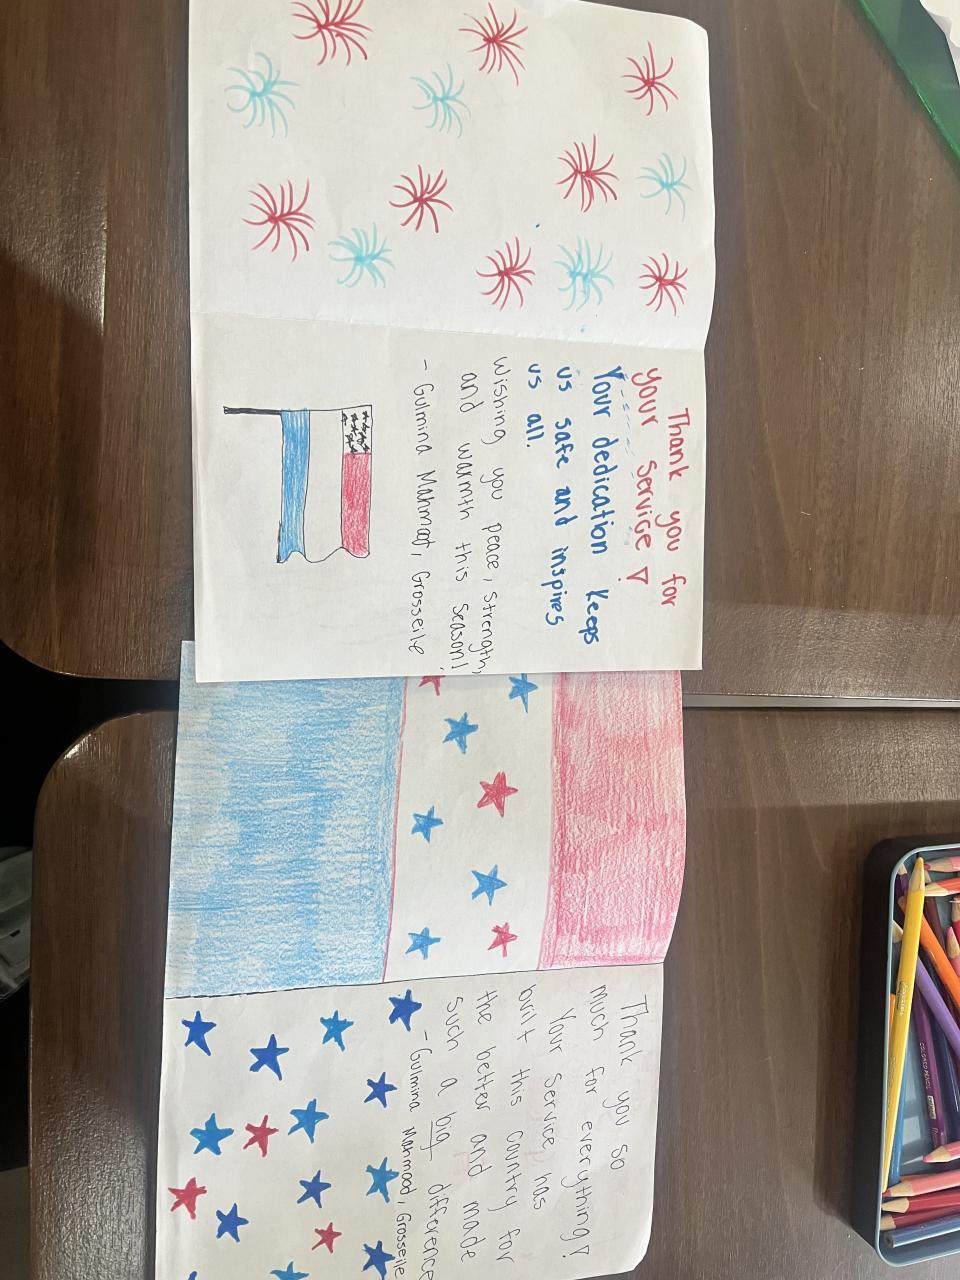 Thank you for
your service!
Your dedication keeps
us safe and inspires
us all.
Wishing you peace, strength,
and warmth this season!
- Gulmina Mahmood, Grosseile
Thank you so
much for everything!
Your service has
built this country for
the better and made
such a big difference
- Gulmina Mahmood, Grosseile